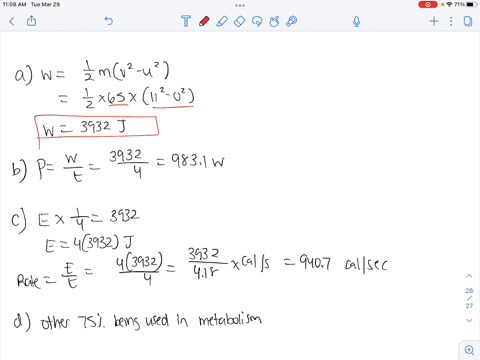 11:08 AM Tue Mar 29
71%
a) W = 1/2 m(v² - u²)
= 1/2 × 65 × (11² - 0²)
W = 3932 J
b) P = W/t = 3932/4 = 983.1 W
c) E × 1/4 = 3932
E = 4(3932) J
Rate = E/t = 4(3932)/4 = 3932/4.18 × cal/s = 940.7 cal/sec
d) other 75% being used in metabolism
26
27